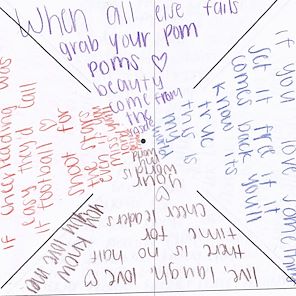 When all else fails
grab your pom
poms ♡
beauty
come from
the
if you love something
set it free if it
comes back you'll
know its
true
this
my
live, laugh, love ♡
there is no half
time for
cheer leaders
you know
you love me
your
world is
if cheerleading was
easy they'd call
it football ♡
shoot for
the